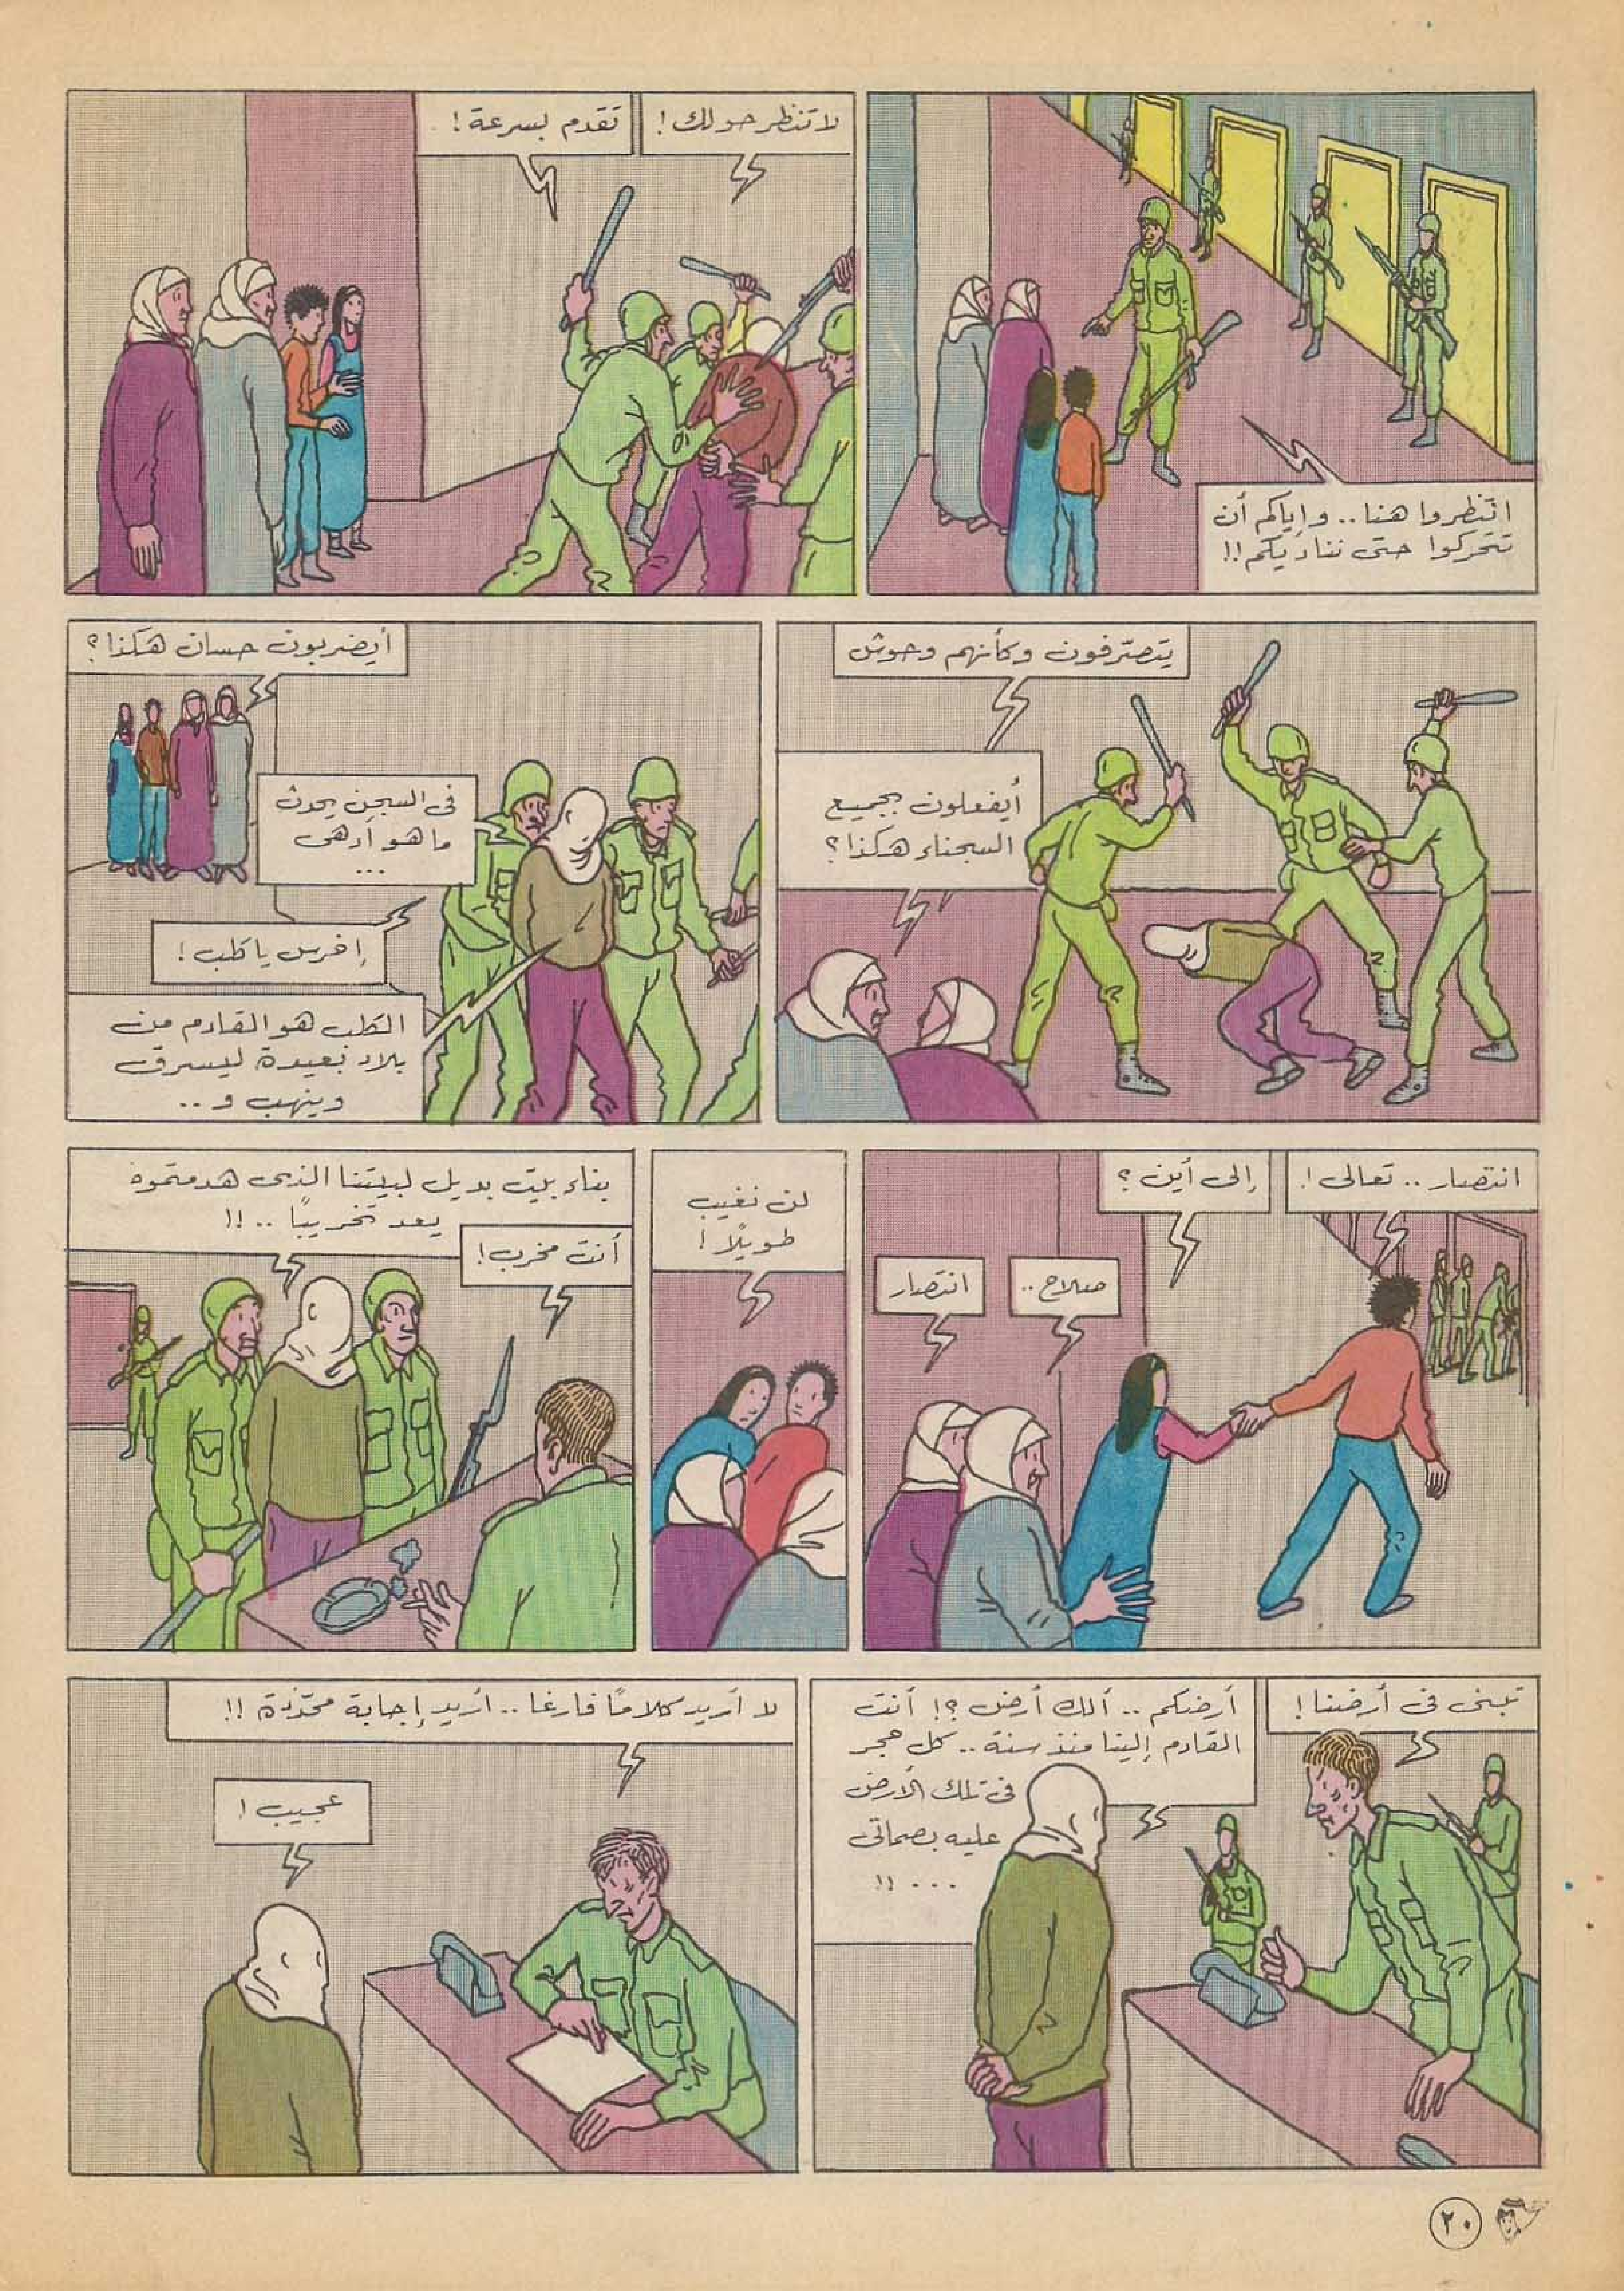 انتظروا هنا.. وإياكم أن
تتحركوا حتى نناديكم!!
لا تنظر حولك!
تقدم بسرعة!
يتصرّفون وكأنهم وحوش
أيفعلون بجميع
السجناء هكذا؟
أيضربون حسان هكذا؟
فى السجن يحدث
ما هو أدهى
...
إخرس يا كلب!
الكلب هو القادم من
بلاد بعيدة ليسرق
وينهب و..
انتصار.. تعالى!
إلى أين؟
صلاح..
انتصار
لن نغيب
طويلاً!
بناء بيت بديل لبيتنا الذى هدمتموه
يعد تخريبًا..!!
أنت مخرب!
تبنى فى أرضنا!
أرضكم.. ألك أرض؟! أنت
القادم إلينا منذ سنة.. كل حجر
فى تلك الأرض
عليه بصماتى
...!!
لا أريد كلامًا فارغا.. أريد إجابة محدّدة!!
عجيب!
٢٠